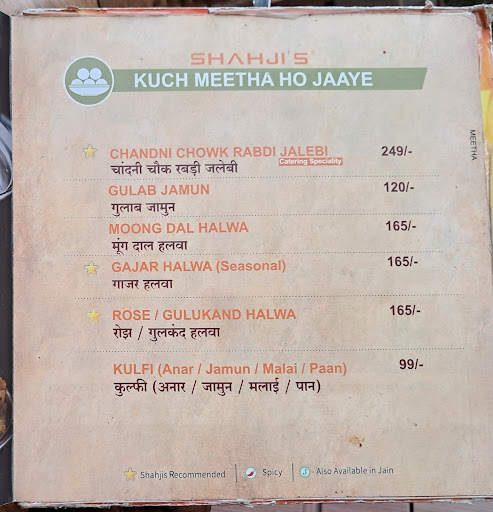 SHAHJI'S
KUCH MEETHA HO JAAYE
MEETHA
CHANDNI CHOWK RABDI JALEBI 249/-
Catering Speciality
चांदनी चौक रबड़ी जलेबी
GULAB JAMUN 120/-
गुलाब जामुन
MOONG DAL HALWA 165/-
मूंग दाल हलवा
GAJAR HALWA (Seasonal) 165/-
गाजर हलवा
ROSE / GULUKAND HALWA 165/-
रोझ / गुलकंद हलवा
KULFI (Anar / Jamun / Malai / Paan) 99/-
कुल्फी (अनार / जामुन / मलाई / पान)
Shahjis Recommended | Spicy | J Also Available in Jain